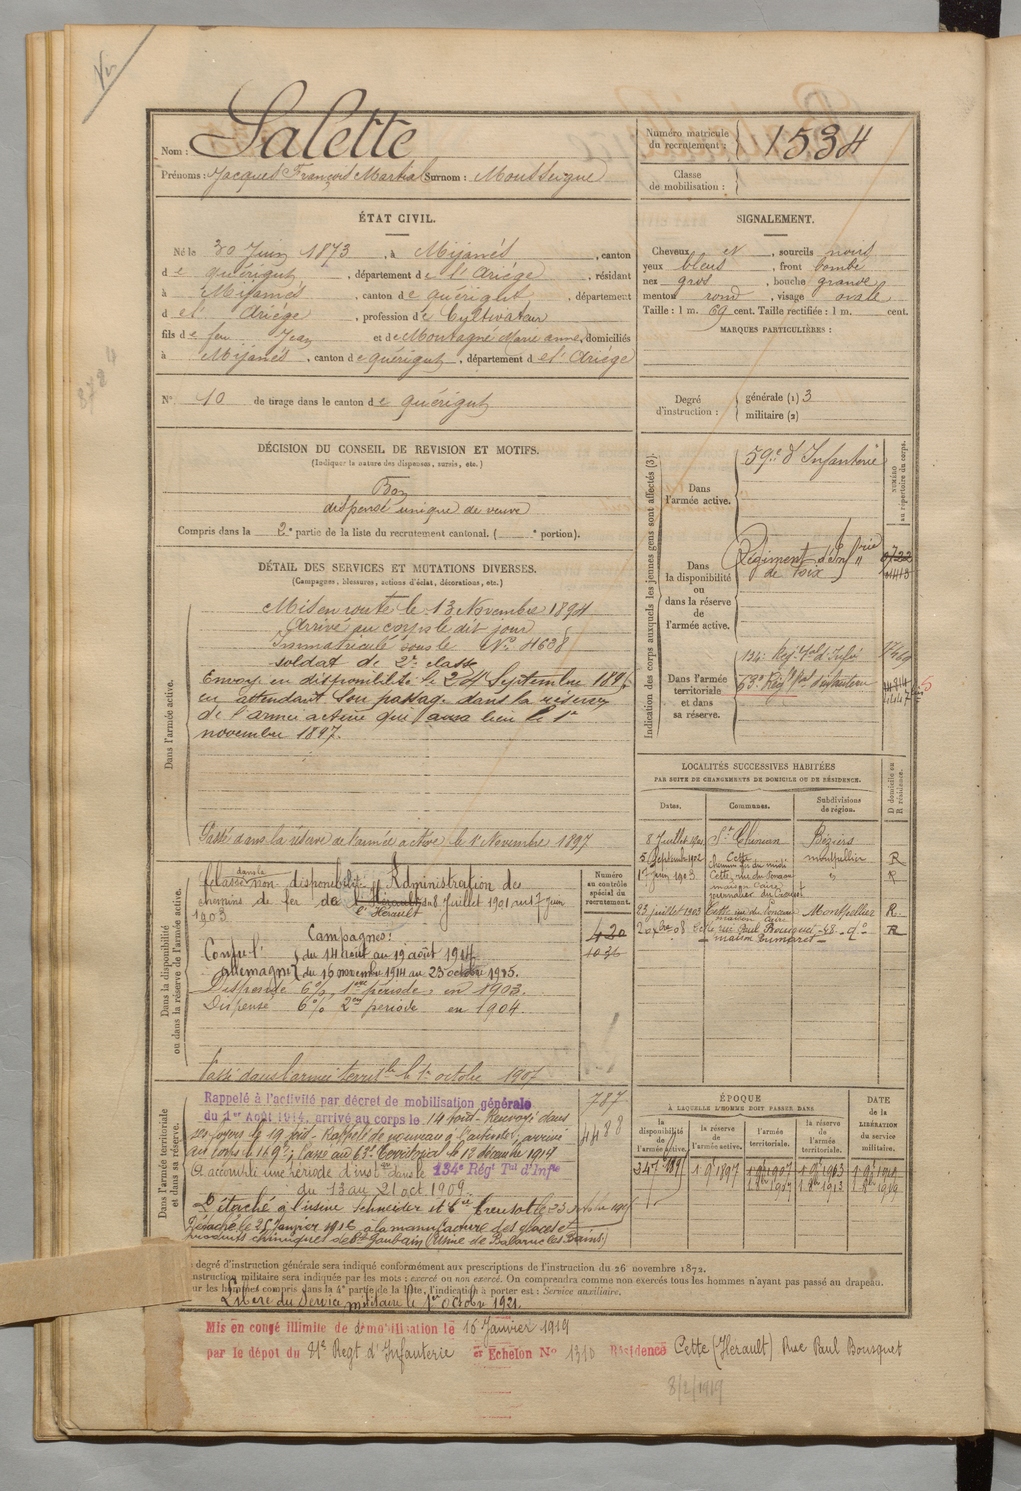 Vu
Nom : Salette
Prénoms : Jacques François Martial Surnom : Mousseigne
Numéro matricule du recrutement : 1534
Classe de mobilisation :
ÉTAT CIVIL.
Né le 30 Juin 1873, à Mijanés, canton
de quérigut, département de l'Ariége, résidant
à Mijanés, canton de quérigut, département
d el' Ariége, profession de Cultivateur
fils de feu Jean et de Montagné Marie anne, domiciliés
à Mijanés, canton de quérigut, département d el' Ariége
N° 10 de tirage dans le canton de quérigut
SIGNALEMENT.
Cheveux N, sourcils noirs
yeux bleus, front bombé
nez gros, bouche grande
menton rond, visage ovale
Taille : 1 m. 69 cent. Taille rectifiée : 1 m. cent.
MARQUES PARTICULIÈRES :
Degré d'instruction : générale (1) 3
militaire (2)
DÉCISION DU CONSEIL DE REVISION ET MOTIFS.
(Indiquer la nature des dispenses, sursis, etc.)
Bon
dispensé unique de veuve
Compris dans la 2e partie de la liste du recrutement cantonal. ( e portion).
DÉTAIL DES SERVICES ET MUTATIONS DIVERSES.
(Campagnes, blessures, actions d'éclat, décorations, etc.)
Dans l'armée active.
Mis en route le 13 Novembre 1894
Arrivé au corps le dit jour
Immatriculé sous le No 4638
soldat de 2e classe
Envoyé en disponibilité le 24 Septembre 1895
en attendant son passage dans la réserve
de l'armée active qui aura lieu le 1er
novembre 1897.
Passé dans la réserve de l'armée active le 1er Novembre 1897
Indication des corps auxquels les jeunes gens sont affectés (3).
NUMÉRO au répertoire du corps.
Dans l'armée active.
59e d'Infanterie
Dans la disponibilité ou dans la réserve de l'armée active.
Régiment d'Infrie
de Foix
Dans l'armée territoriale et dans sa réserve.
134e Régt Tal d'Infie
63e Régt Tal d'infanterie
LOCALITÉS SUCCESSIVES HABITÉES
PAR SUITE DE CHANGEMENTS DE DOMICILE OU DE RÉSIDENCE.
Dates. Communes. Subdivisions de région. D domicile ou R résidence.
8 Juillet 1901 St Chinian Béziers
5 Septembre 1902 Cette chemin fer du midi montpellier R
17 Juin 1903 Cette, rue du
maison Caire
23 juillet 1903 Cette rue du
maison Caire Montpellier R.
20 Xbre 08 Cette rue Paul Bousquet 48 do R
Dans la disponibilité ou dans la réserve de l'armée active.
Numéro au contrôle spécial du recrutement.
Classé dans la non disponibilité Administration des
chemins de fer de l'Hérault du 8 Juillet 1901 au 17 Juin
1903
l'Hérault
420
1036
Campagnes:
Contre l' du 14 août au 19 août 1914
Allemagne du 16 novembre 1914 au 23 octobre 1915.
Dispensé 6% 1ere période, en 1903.
Dispensé 6% 2eme période en 1904.
Passé dans l'armée territle le 1er octobre 1907
Dans l'armée territoriale et dans sa réserve.
787
4488
Rappelé à l'activité par décret de mobilisation générale
du 1er Août 1914. arrivé au corps le 14 août. Renvoyé dans
ses foyers le 19 août. Rappelé de nouveau à l'activité, arrivé
au corps le 16 9bre; Passé au 63e Territorial le 12 décembre 1914
A accompli une période d'inston dans le 134e Régt Tal d'Infie
du 13 au 21 oct 1909.
Détaché à l'usine Schneider et Cie Creusot le 23 octobre 1915
Détaché le 25 Janvier 1916 à la manufacture des glaces et
produits chimiques de St Gaubain (Usine de Balaruc les Bains)
ÉPOQUE
À LAQUELLE L'HOMME DOIT PASSER DANS
la disponibilité de l'armée active.
la réserve de l'armée active.
l'armée territoriale.
la réserve de l'armée territoriale.
DATE de la LIBÉRATION du service militaire.
1 9bre 1897
degré d'instruction générale sera indiqué conformément aux prescriptions de l'instruction du 26 novembre 1872.
nstruction militaire sera indiquée par les mots : exercé ou non exercé. On comprendra comme non exercés tous les hommes n'ayant pas passé au drapeau.
ur les hommes compris dans la 4e partie de la liste, l'indication à porter est : Service auxiliaire.
Libéré du Service militaire le 1er octobre 1921.
Mis en congé illimité de démobilisation le 16 Janvier 1919
par le dépot du 81e Regt d'Infanterie 2e Echelon No 1310 Résidence Cette (Hérault) Rue Paul Bousquet
8/2/1919